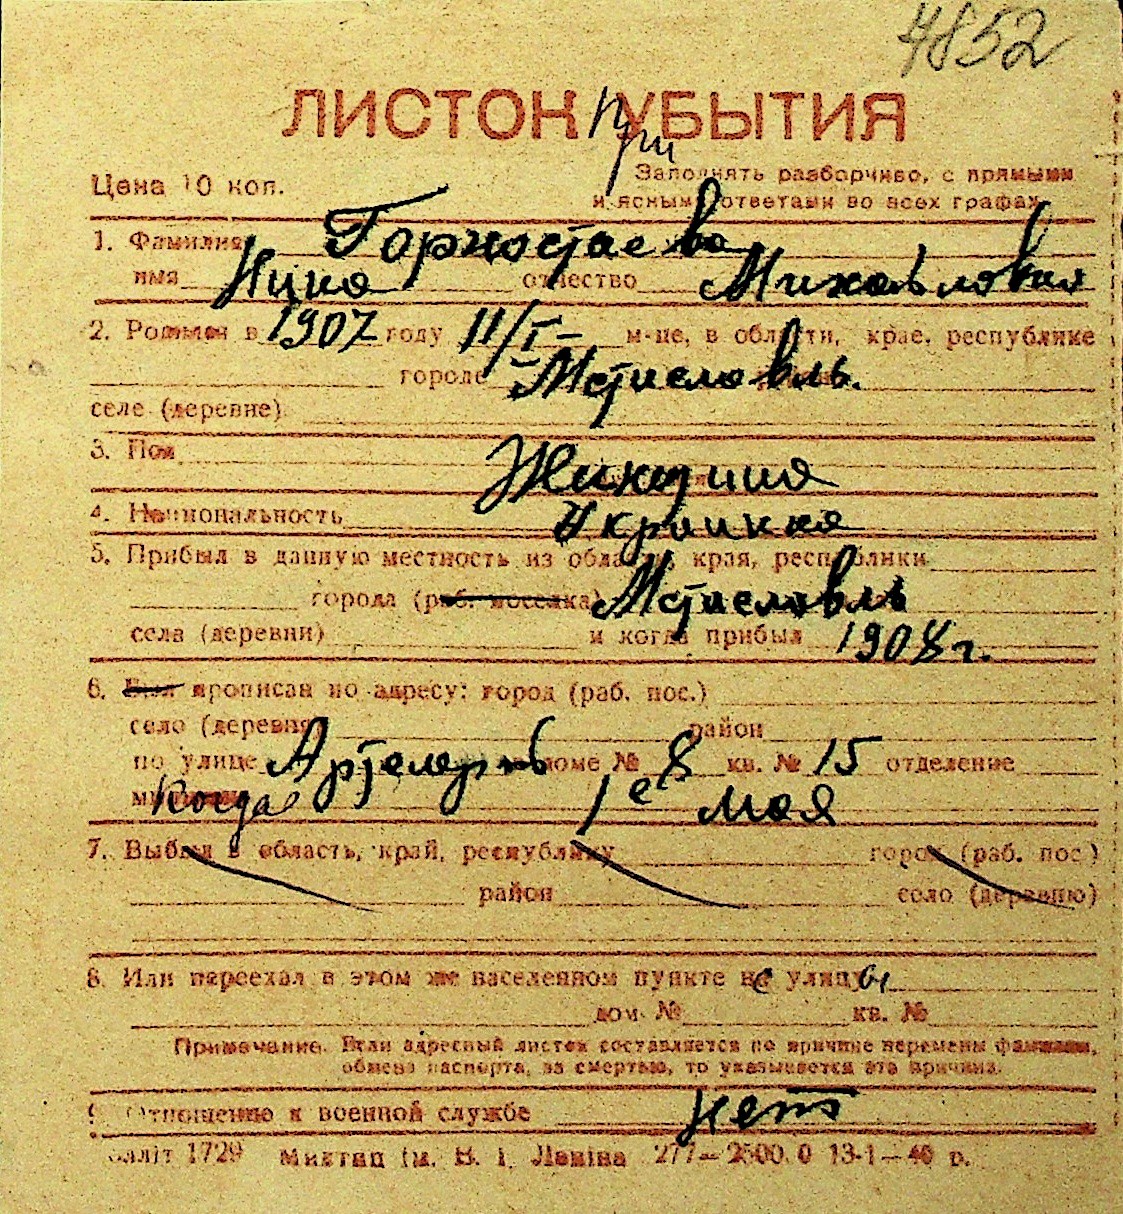 4852
ЛИСТОК При УБЫТИЯ
Цена 10 коп.
Заполнять разборчиво, с прямыми
и ясными ответами во всех графах
1. Фамилия Горностаева
имя Нина отчество Михайловна
2. Родился в 1907 году 11/I- м-це, в области, крае, республике
городе Мстиславль.
селе (деревне)
3. Пол Женщина
4. Национальность Украинка
5. Прибыл в данную местность из области, края, республики
города (раб. поселка) Мстиславль
села (деревни) и когда прибыл 1908 г.
6. Был прописан по адресу: город (раб. пос.)
село (деревня) район
по улице доме № 8 кв. № 15 отделение
милиции Когда 1е мая
7. Выбыл в область, край, республику город (раб. пос.)
район село (деревню)
8. Или переехал в этом же населенном пункте с улицы
дом № кв. №
Примечание. Если адресный листок составляется по причине перемены фамилии,
обмена паспорта, за смертью, то указывается эта причина.
9. Отношение к военной службе нет
1729 277—2500.0 13-1—40 р.